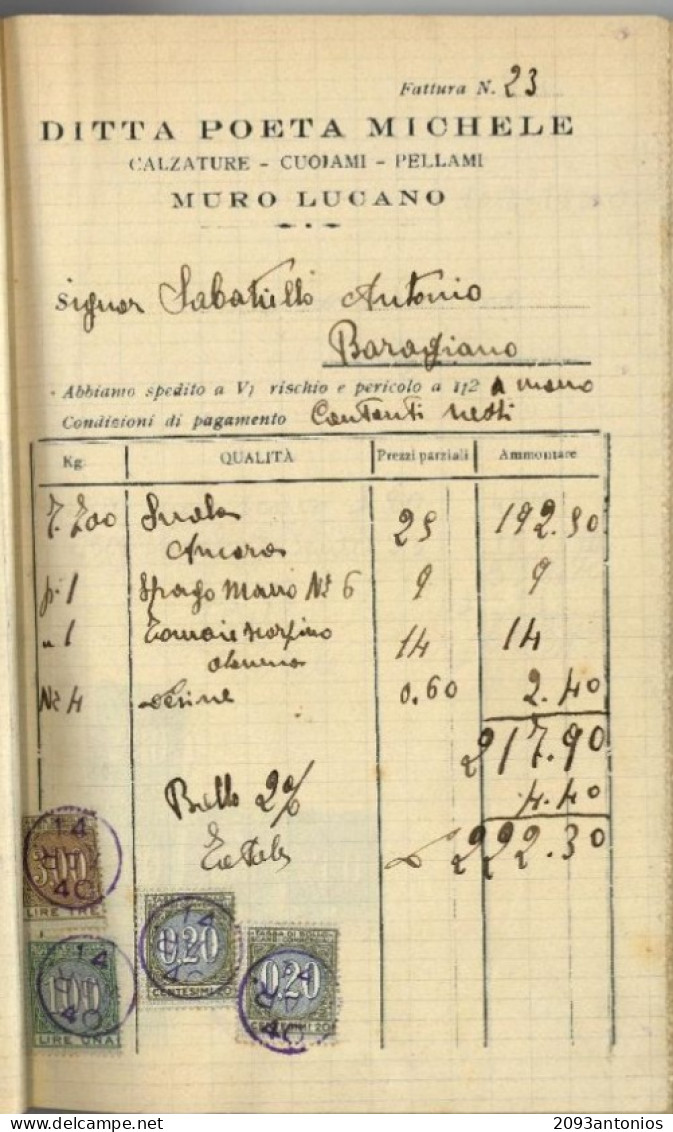 Fattura N. 23
DITTA POETA MICHELE
CALZATURE - CUOIAMI - PELLAMI
MURO LUCANO
Signor Sabatiello Antonio
Baragiano
Abbiamo spedito a V/ rischio e pericolo a 1/2 A mano
Condizioni di pagamento Contanti netti
Kg. QUALITÀ Prezzi parziali Ammontare
7.700 Suola 25 192.50
Ancora
p. 1 Spago Mano N° 6 9 9
" 1 Tomaie 14 14
N° 4 Lesine 0.60 2.40
217.90
Bollo 2% 4.40
Totale £ 222.30
3.00
LIRE TRE
1.00
LIRE UNA
0.20
CENTESIMI 20
TASSA DI BOLLO
0.20
CENTESIMI 20
14
40
14
40
14
40
14
40
2093antonios